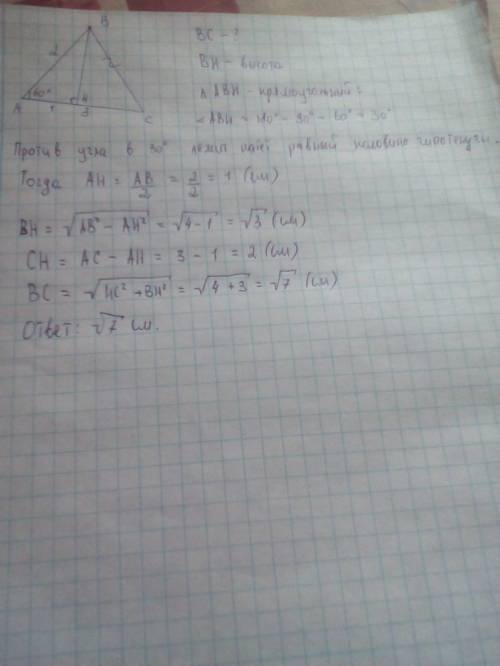 B
BC - ?
2
BH - высота
△ABH - прямоугольный:
A 60° H C
3
∠ABH = 180° - 90° - 60° = 30°
Против угла в 30° лежит катет равный половине гипотенузы.
Тогда AH = AB/2 = 2/2 = 1 (см)
BH = √AB² - AH² = √4 - 1 = √3 (см)
CH = AC - AH = 3 - 1 = 2 (см)
BC = √HC² + BH² = √4 + 3 = √7 (см)
Ответ: √7 см.